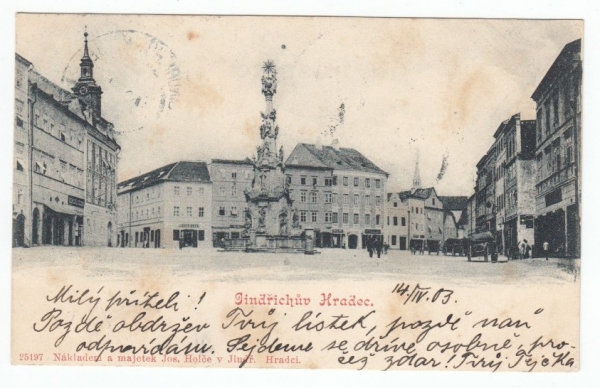 Jindřichův Hradec.
14/IV. 03.
Milý příteli!
Pozdě obdržev Tvůj lístek, pozdě naň
odpovídám. Sejdeme se dříve osobně, pro-
čež zdar! Tvůj
25197 Nákladem a majetek Jos. Holče v Jindř. Hradci.